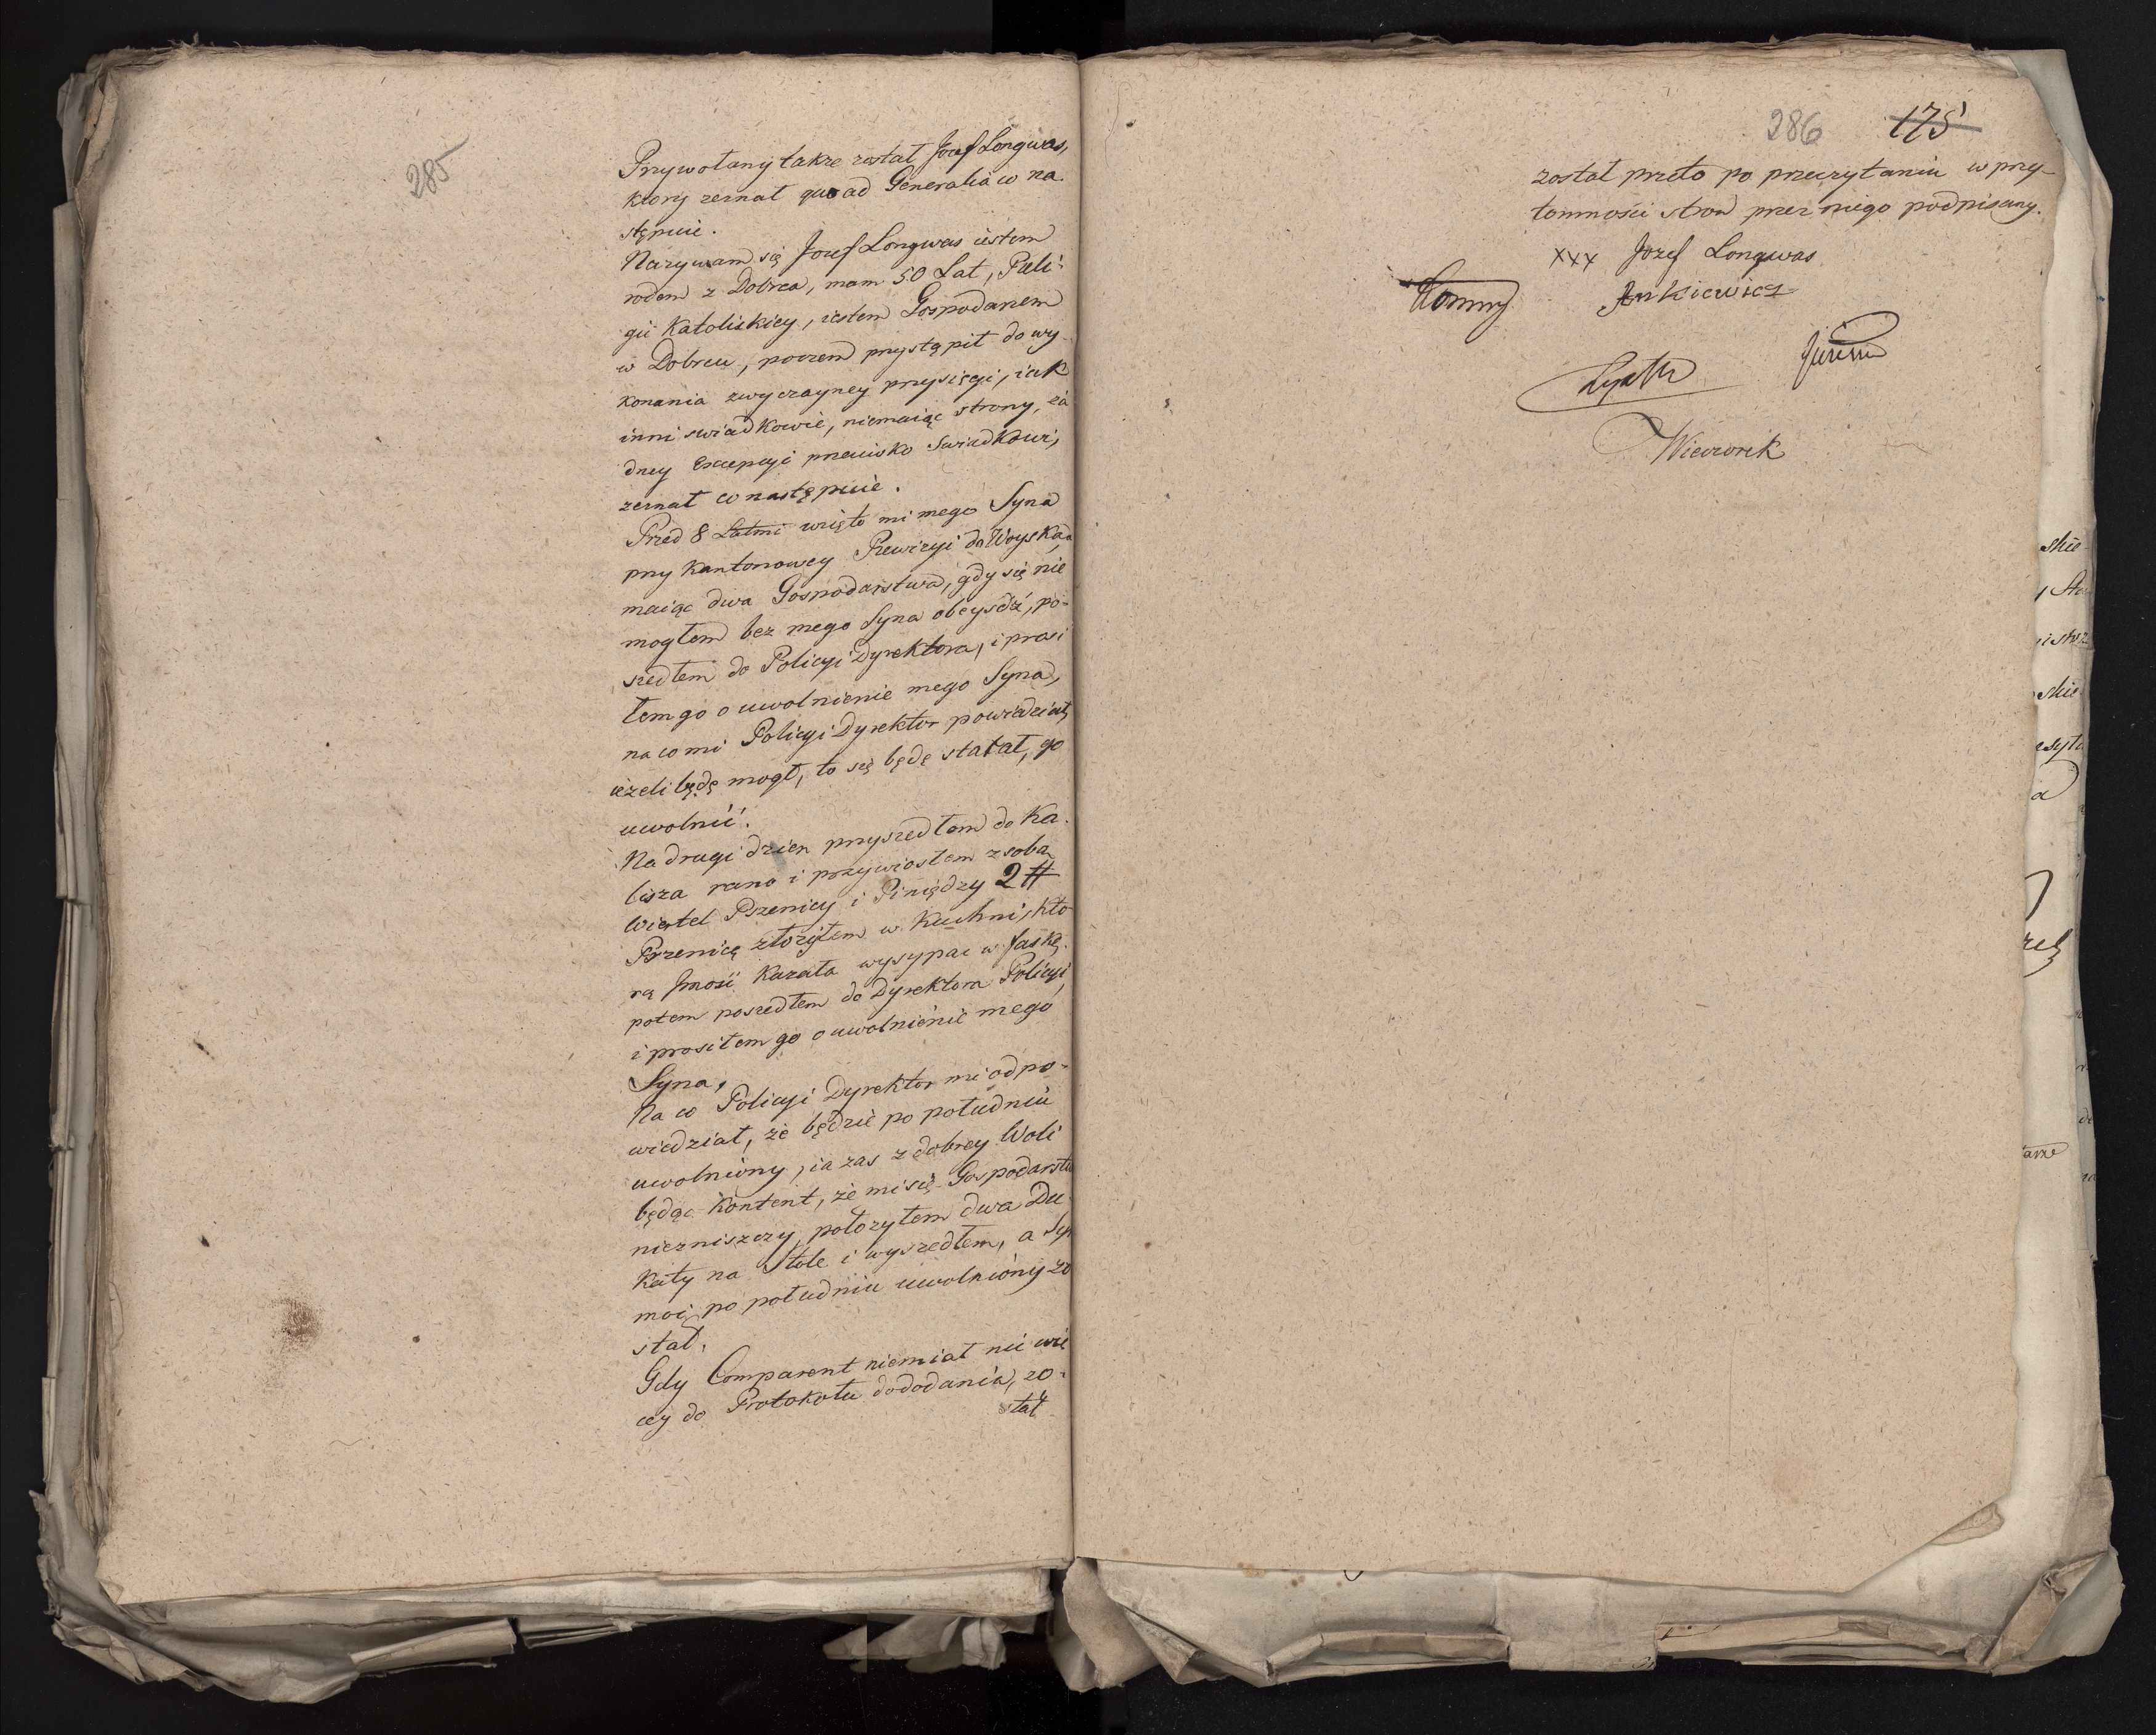 285
Przywołany takze został Jozef Longwas,
ktory zeznał quoad Generalia co na-
stępuie.
Nazywam się Jozef Longwas iestem
rodem z Dobrca, mam 50 Lat, Reli-
gii Katolickiey, iestem Gospodarzem
w Dobrcu, poczem przystąpił do wy-
konania zwyczayney przysięgi, iak
inni swiadkowie, niemaiąc strony, ża
dney Excepcyi przeciwko Swiadkowi,
zeznał co następuie.
Przed 8 Latmi wzięto mi mego Syna
przy Kantonowey Rewizyi do Woyska,
maiąc dwa Gospodarstwa, gdy się nie
mogłem bez mego Syna obeysdź, po-
szedłem do Policyi Dyrektora, i prosi
łem go o uwolnienie mego Syna,
na co mi Policyi Dyrektor powiedział,
ieżeli będę mogł, to się będę starał, go
uwolnić.
Na drugi dzien przyszedłem do Ka-
lisza rano i przywiosłem z sobą
Wiertel Pszenicy i Piniędzy 2 #
Pszenicę złożyłem w Kuchni, kto
rą Jmość kazała wysypac w faskę,
potem poszedłem do Dyrektora Policyi,
i prosiłem go o uwolnienie mego
Syna,
Na co Policyi Dyrektor mi odpo-
wiedział, że będzie po południu
uwolniony, ia zas z dobrey Woli
będąc kontent, że mi się Gospodarstwo
niezniszczy, położyłem dwa Du
katy na Stole i wyszedłem, a Syn
moi po południu uwolniony zo
stał.
Gdy Comparent niemiał nic wię
cey do Protokołu dododania, zo-
stał
286 175
został przeto po przeczytaniu w przy-
tomności stron przez niego podpisany.
xxx Jozef Longwas
Ankiewicz
Wieczorek
skie